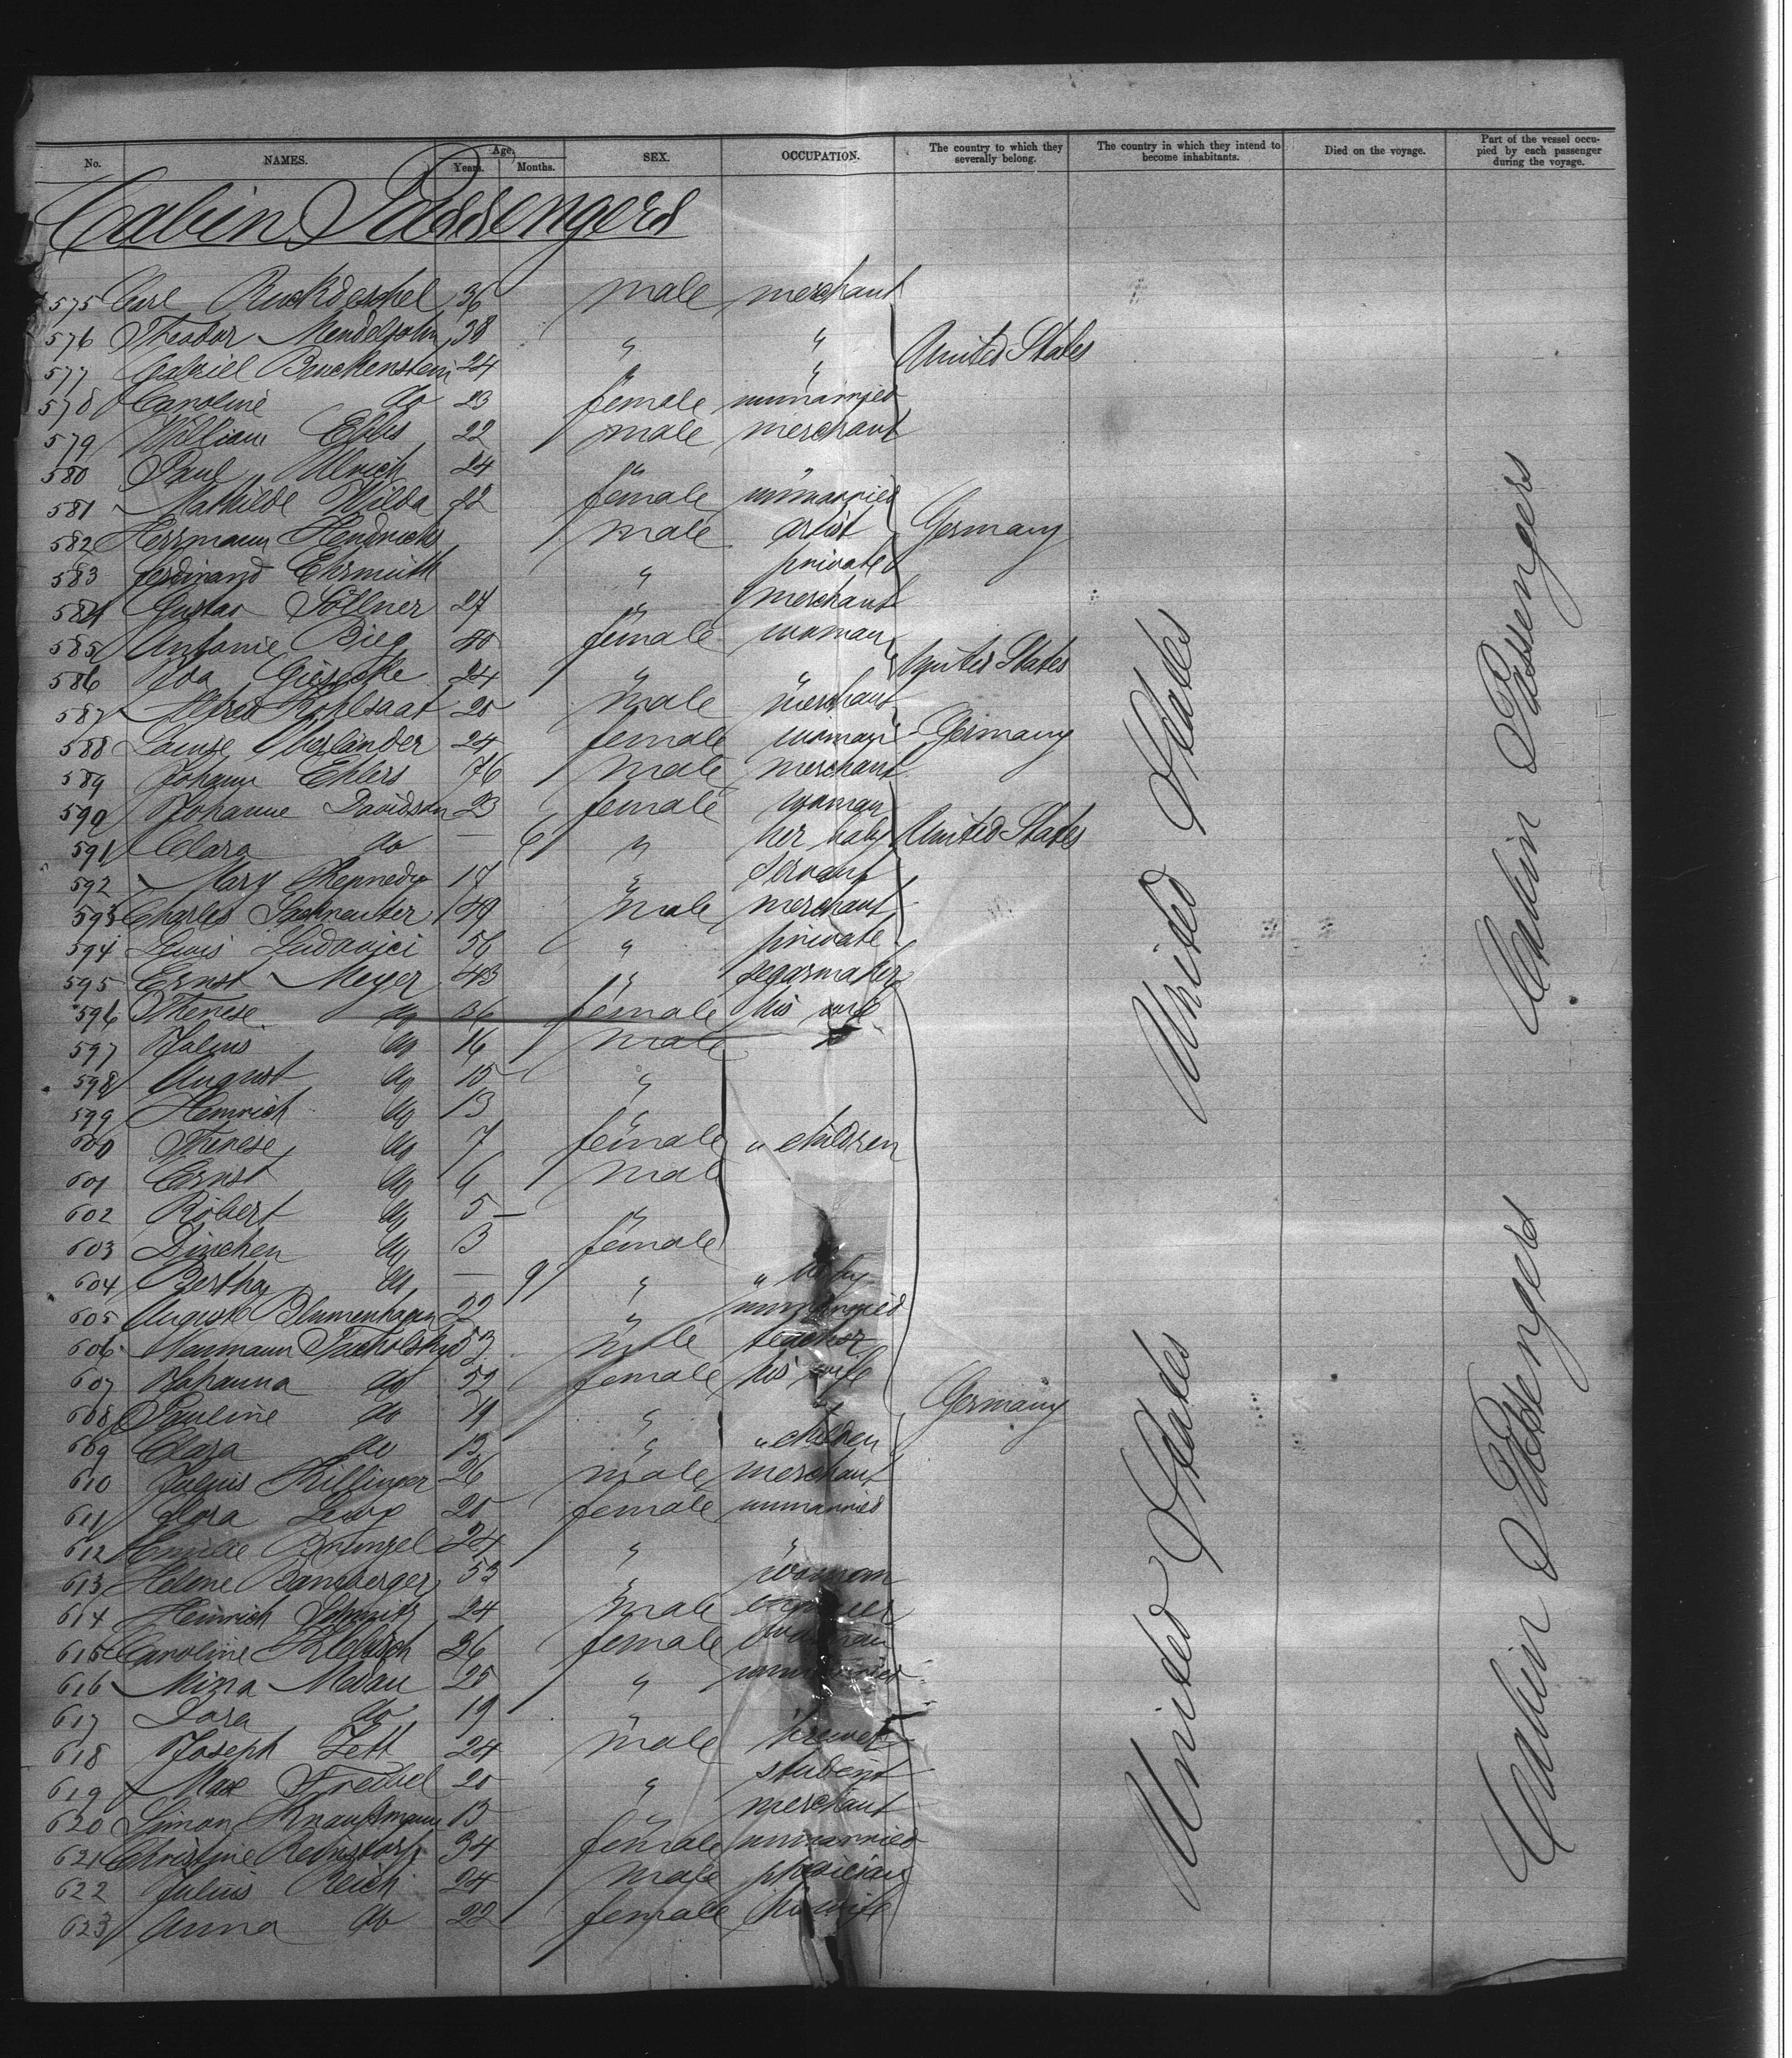 No. NAMES. Age. Years. Months. SEX. OCCUPATION. The country to which they severally belong. The country in which they intend to become inhabitants. Died on the voyage. Part of the vessel occupied by each passenger during the voyage.
Cabin Passengers
575 Carl Ruckdeschel 36 male merchant
576 Theodor Mendelsohn 38 " " United States
577 Gabriel Bruckenstein 24 " "
578 Caroline do 23 female unmarried
579 William Ehlers 22 male merchant
580 Paul Ulrich 24 " "
581 Mathilde Wilda 22 female unmarried
582 Herrmann Hendrichs male artist Germany
583 Ferdinand Ehrmuth " private
584 Gustav Söllner 27 " merchant
585 Antonie Bieg 40 female woman
586 Ida Giesecke 24 " " United States
587 Alfred Kohlsaat 20 male merchant
588 Louise Oberländer 24 female woman Germany
589 Johann Ehlers 76 male merchant
590 Johanne Davidson 23 female woman
591 Clara do — 6 " her baby United States
592 Mary Kennedy 17 " servant
593 Charles 49 male merchant
594 Lewis Ludovici 56 " private
595 Ernst Meyer 43 " segarmaker
596 Therese do 36 female his wife
597 Julius do 16 male
598 August do 15 "
599 Heinrich do 13 "
600 Therese do 7 female " children
601 Ernst do 6 male
602 Robert do 5 "
603 Dinchen do 3 female
604 Bertha do — 9 " " baby
605 Auguste Blumenhagen 22 " unmarried
606 Naumann Tucholsky 53 male teacher
607 Johanna do 52 female his wife
608 Pauline do 19 " Germany
609 Clara do 13 " " children
610 Julius Killinger 26 male merchant
611 Flora Levy 20 female unmarried
612 Emilie Brunzel 24 " "
613 Helene Bamberger 53 " woman
614 Heinrich Schmitz 24 male
615 Caroline 36 female woman
616 Minna Madau 25 " unmarried
617 Dora do 19 "
618 Joseph Zett 24 male brewer
619 Max Froebel 20 " student
620 Simon 13 " merchant
621 Christine Reinstorf 34 female unmarried
622 Julius Reich 24 male physician
623 Anna do 22 female his wife
United States
United States
Cabin Passengers
Cabin Passengers